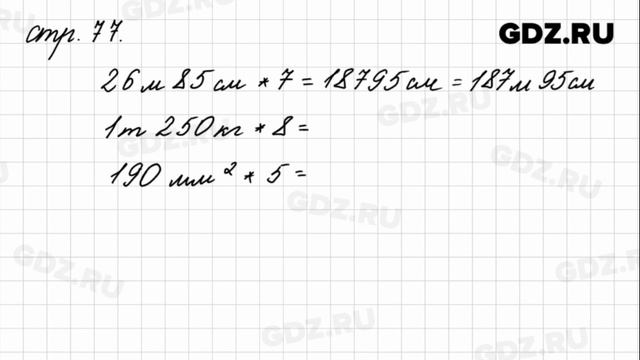 стр. 77.
GDZ.RU
26 м 85 см * 7 = 18795 см = 187 м 95 см
1 т 250 кг * 8 =
190 мм² * 5 =
GDZ.RU
GDZ.RU
GDZ.RU
GDZ.RU
GDZ.RU
GDZ.RU
GDZ.RU
GDZ.RU